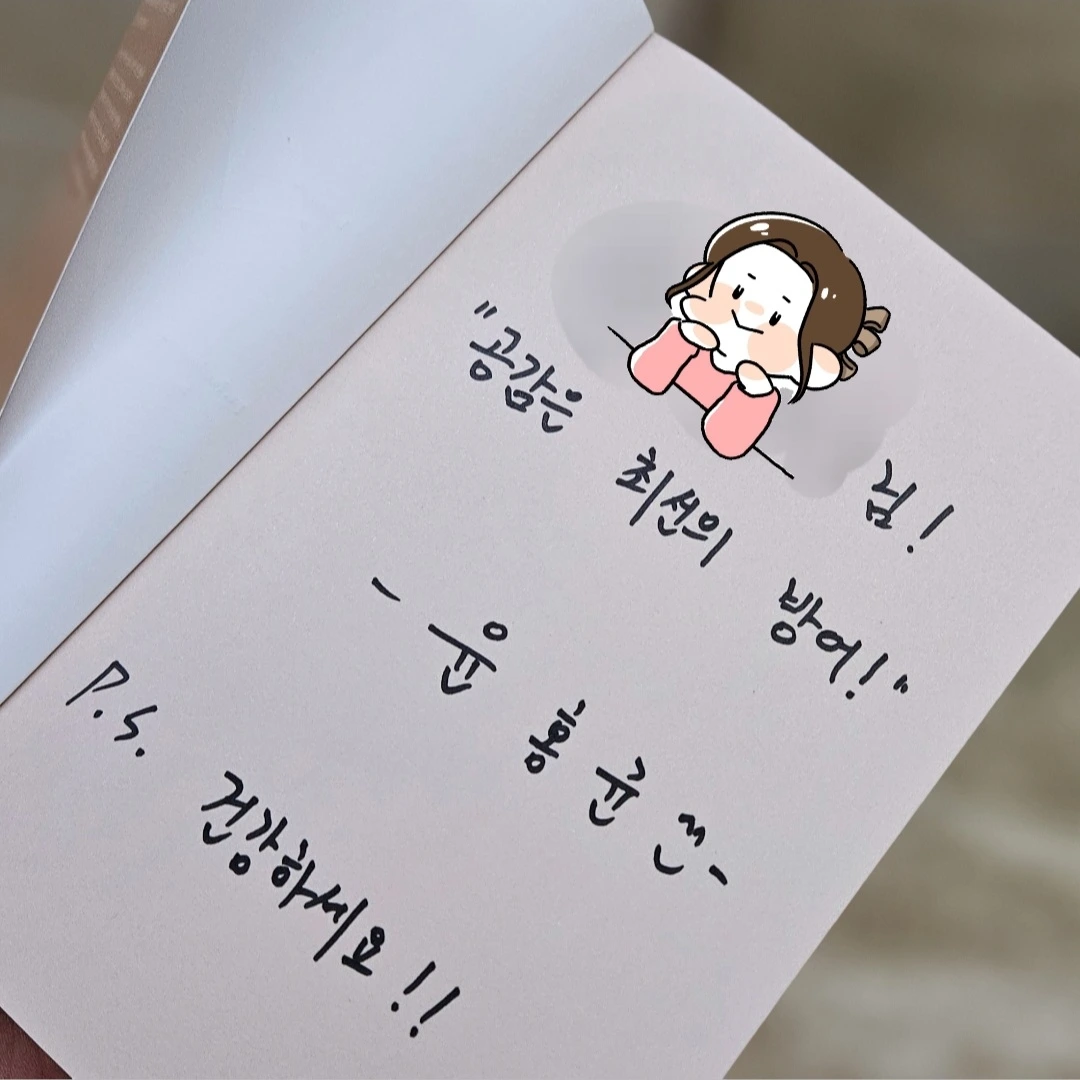 님!
"공감은 최선의 방어!"
- 윤홍균 드림 -
P.S. 건강하세요!!